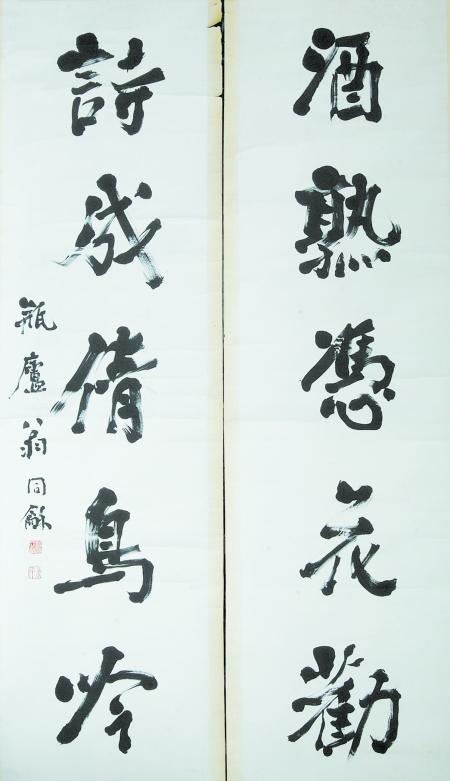 酒熟憑花勸
詩成倩鳥吟
瓶廬翁同龢